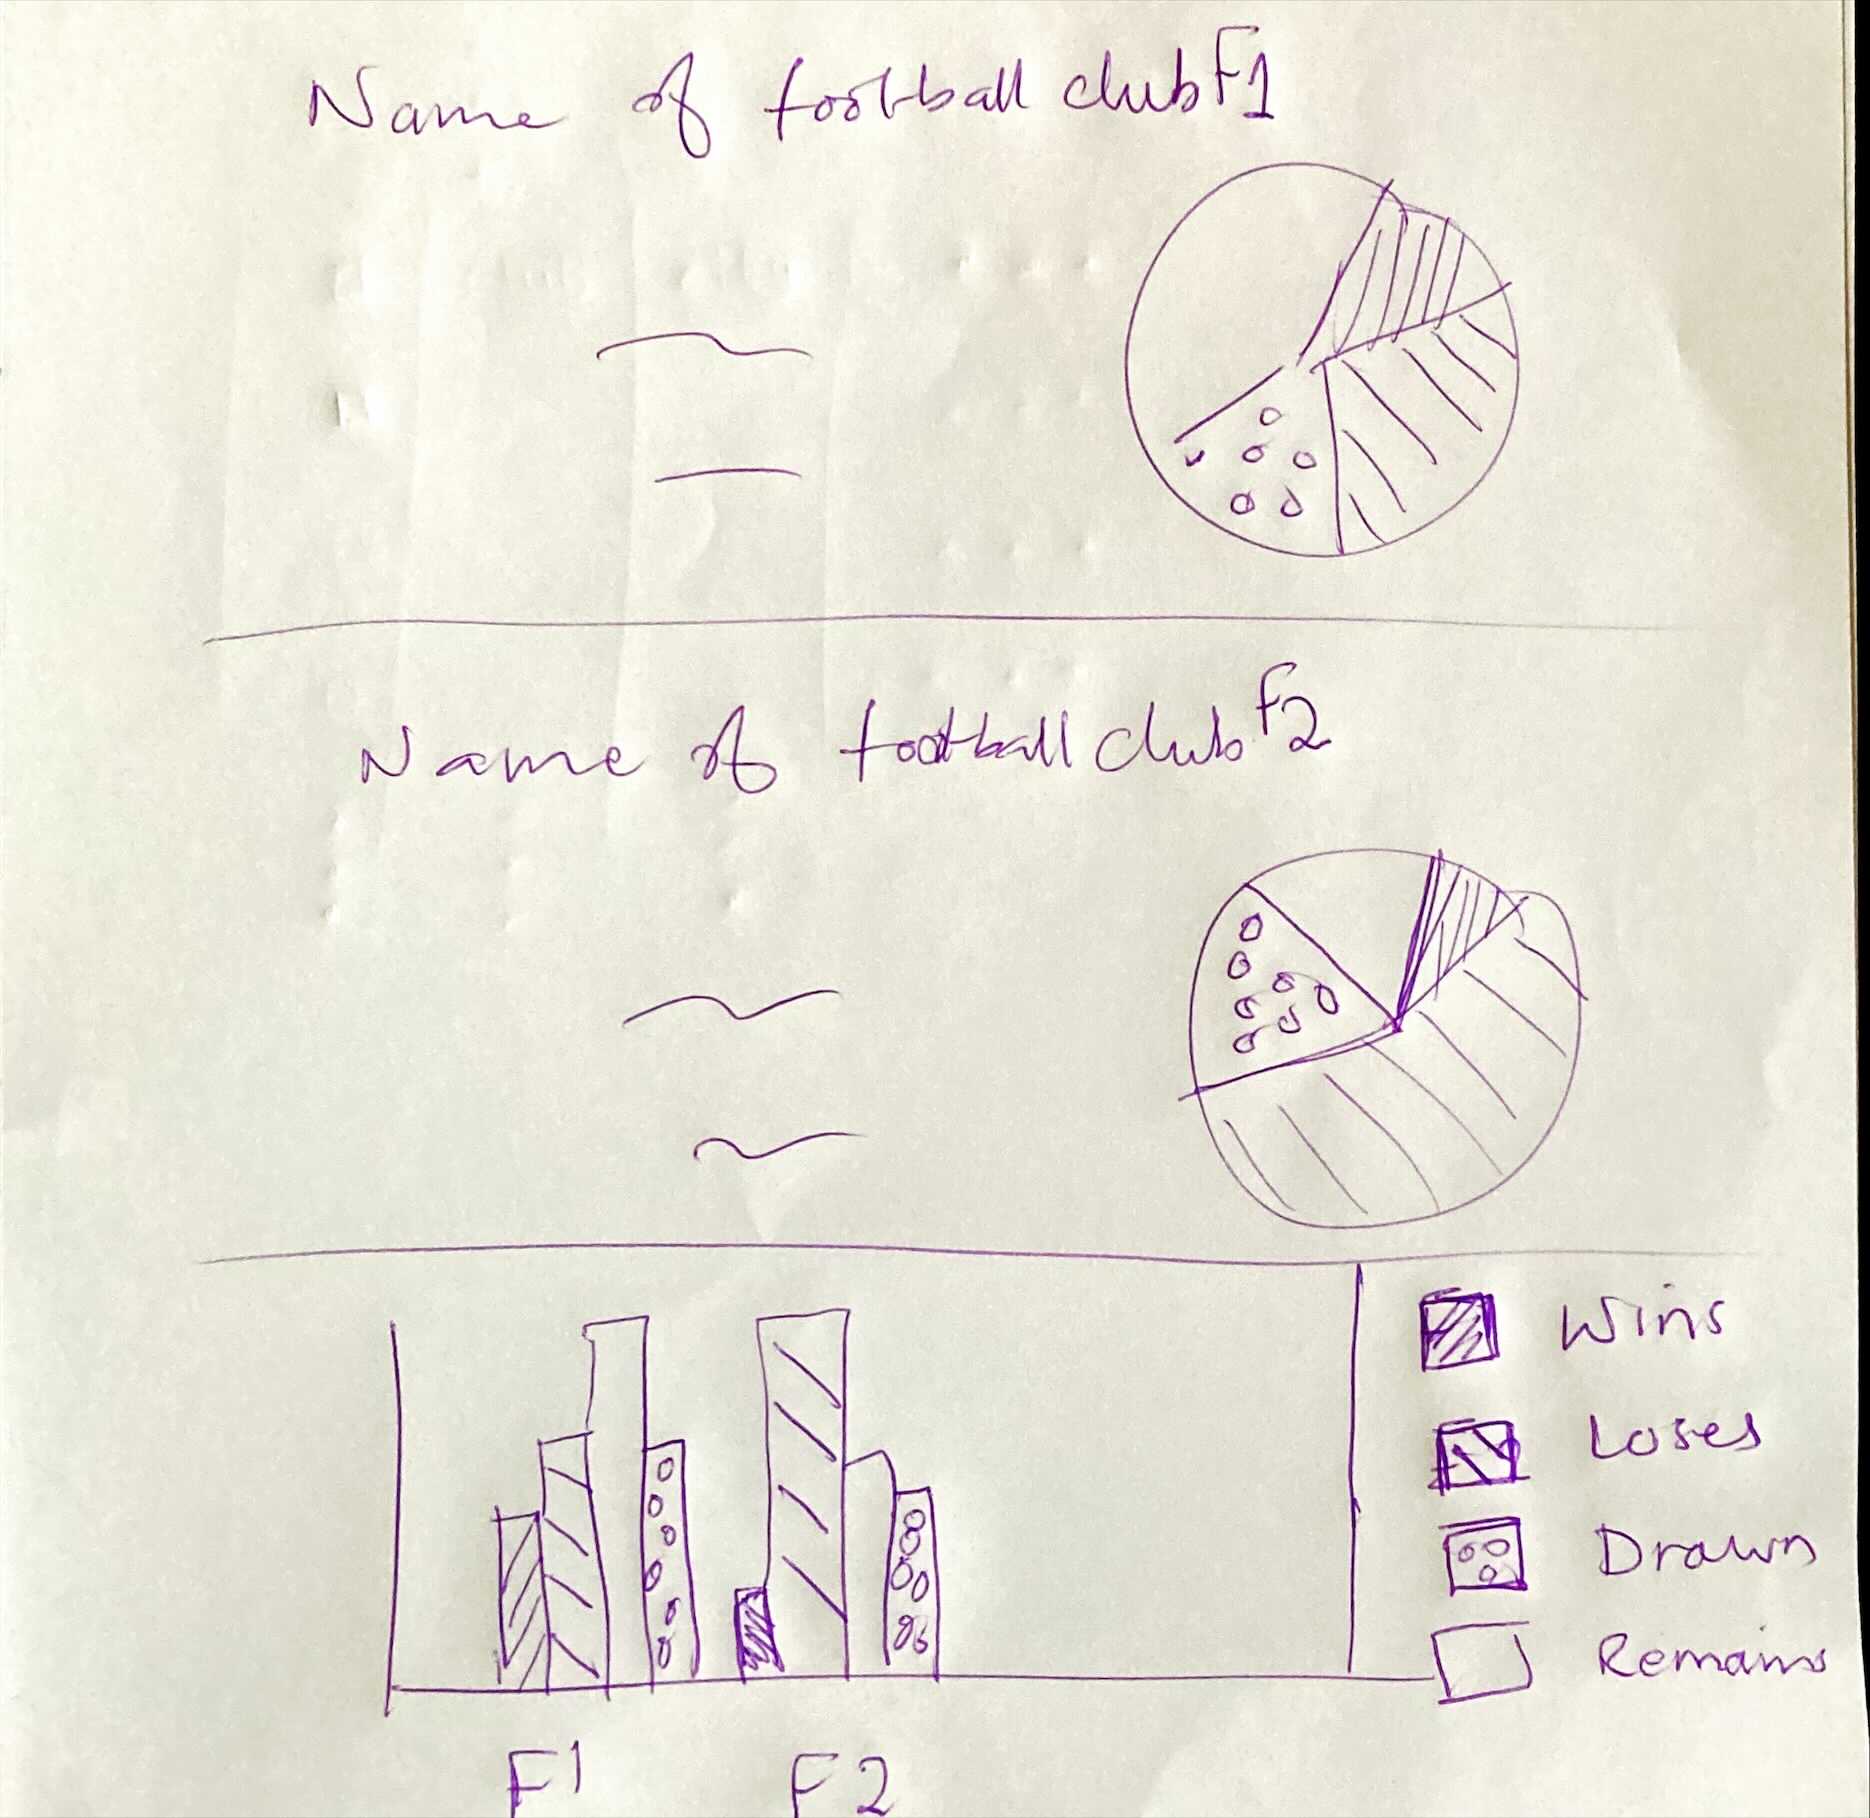 Name of football club F1
Name of football club F2
Wins
Loses
Drawn
Remains
F1 F2